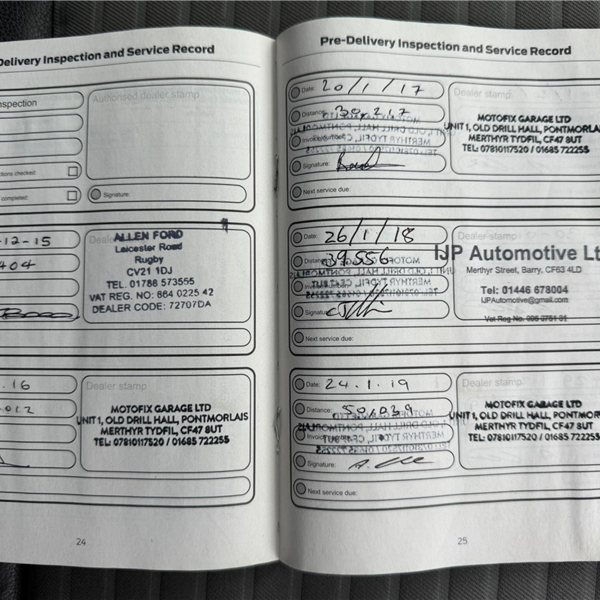 Delivery Inspection and Service Record
nspection
Authorised dealer stamp
tions checked:
completed:
Signature:
-12-15
404
Deale
ALLEN FORD
Leicester Road
Rugby
CV21 1DJ
TEL. 01788 573555
VAT REG. NO: 664 0225 42
DEALER CODE: 72707DA
.16
012
Dealer stamp
MOTOFIX GARAGE LTD
UNIT 1, OLD DRILL HALL, PONTMORLAIS
MERTHYR TYDFIL, CF47 8UT
TEL: 07810117520 / 01685 722255
24
Pre-Delivery Inspection and Service Record
Date: 20/1/17
Distance: 30,217
Signature:
Next service due:
Dealer stamp
MOTOFIX GARAGE LTD
UNIT 1, OLD DRILL HALL, PONTMORLAI
MERTHYR TYDFIL, CF47 8UT
TEL: 07810117520 / 01685 722255
Date: 26/1/18
Distance: 39556
Signature:
Next service due:
Dealer stamp
IJP Automotive Lt
Merthyr Street, Barry, CF63 4LD
Tel: 01446 678004
IJPAutomotive@gmail.com
Date: 24.1.19
Distance: 50,039
Signature:
Next service due:
Dealer stamp
MOTOFIX GARAGE LTD
UNIT 1, OLD DRILL HALL, PONTMOR
MERTHYR TYDFIL, CF47 8UT
TEL: 07810117520 / 01685 722255
25